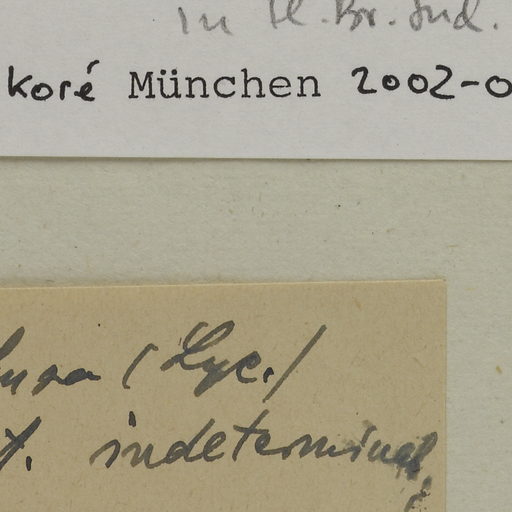 in Fl. Br. Ind.
koré München 2002-0
(Lyc.)
indeterminat